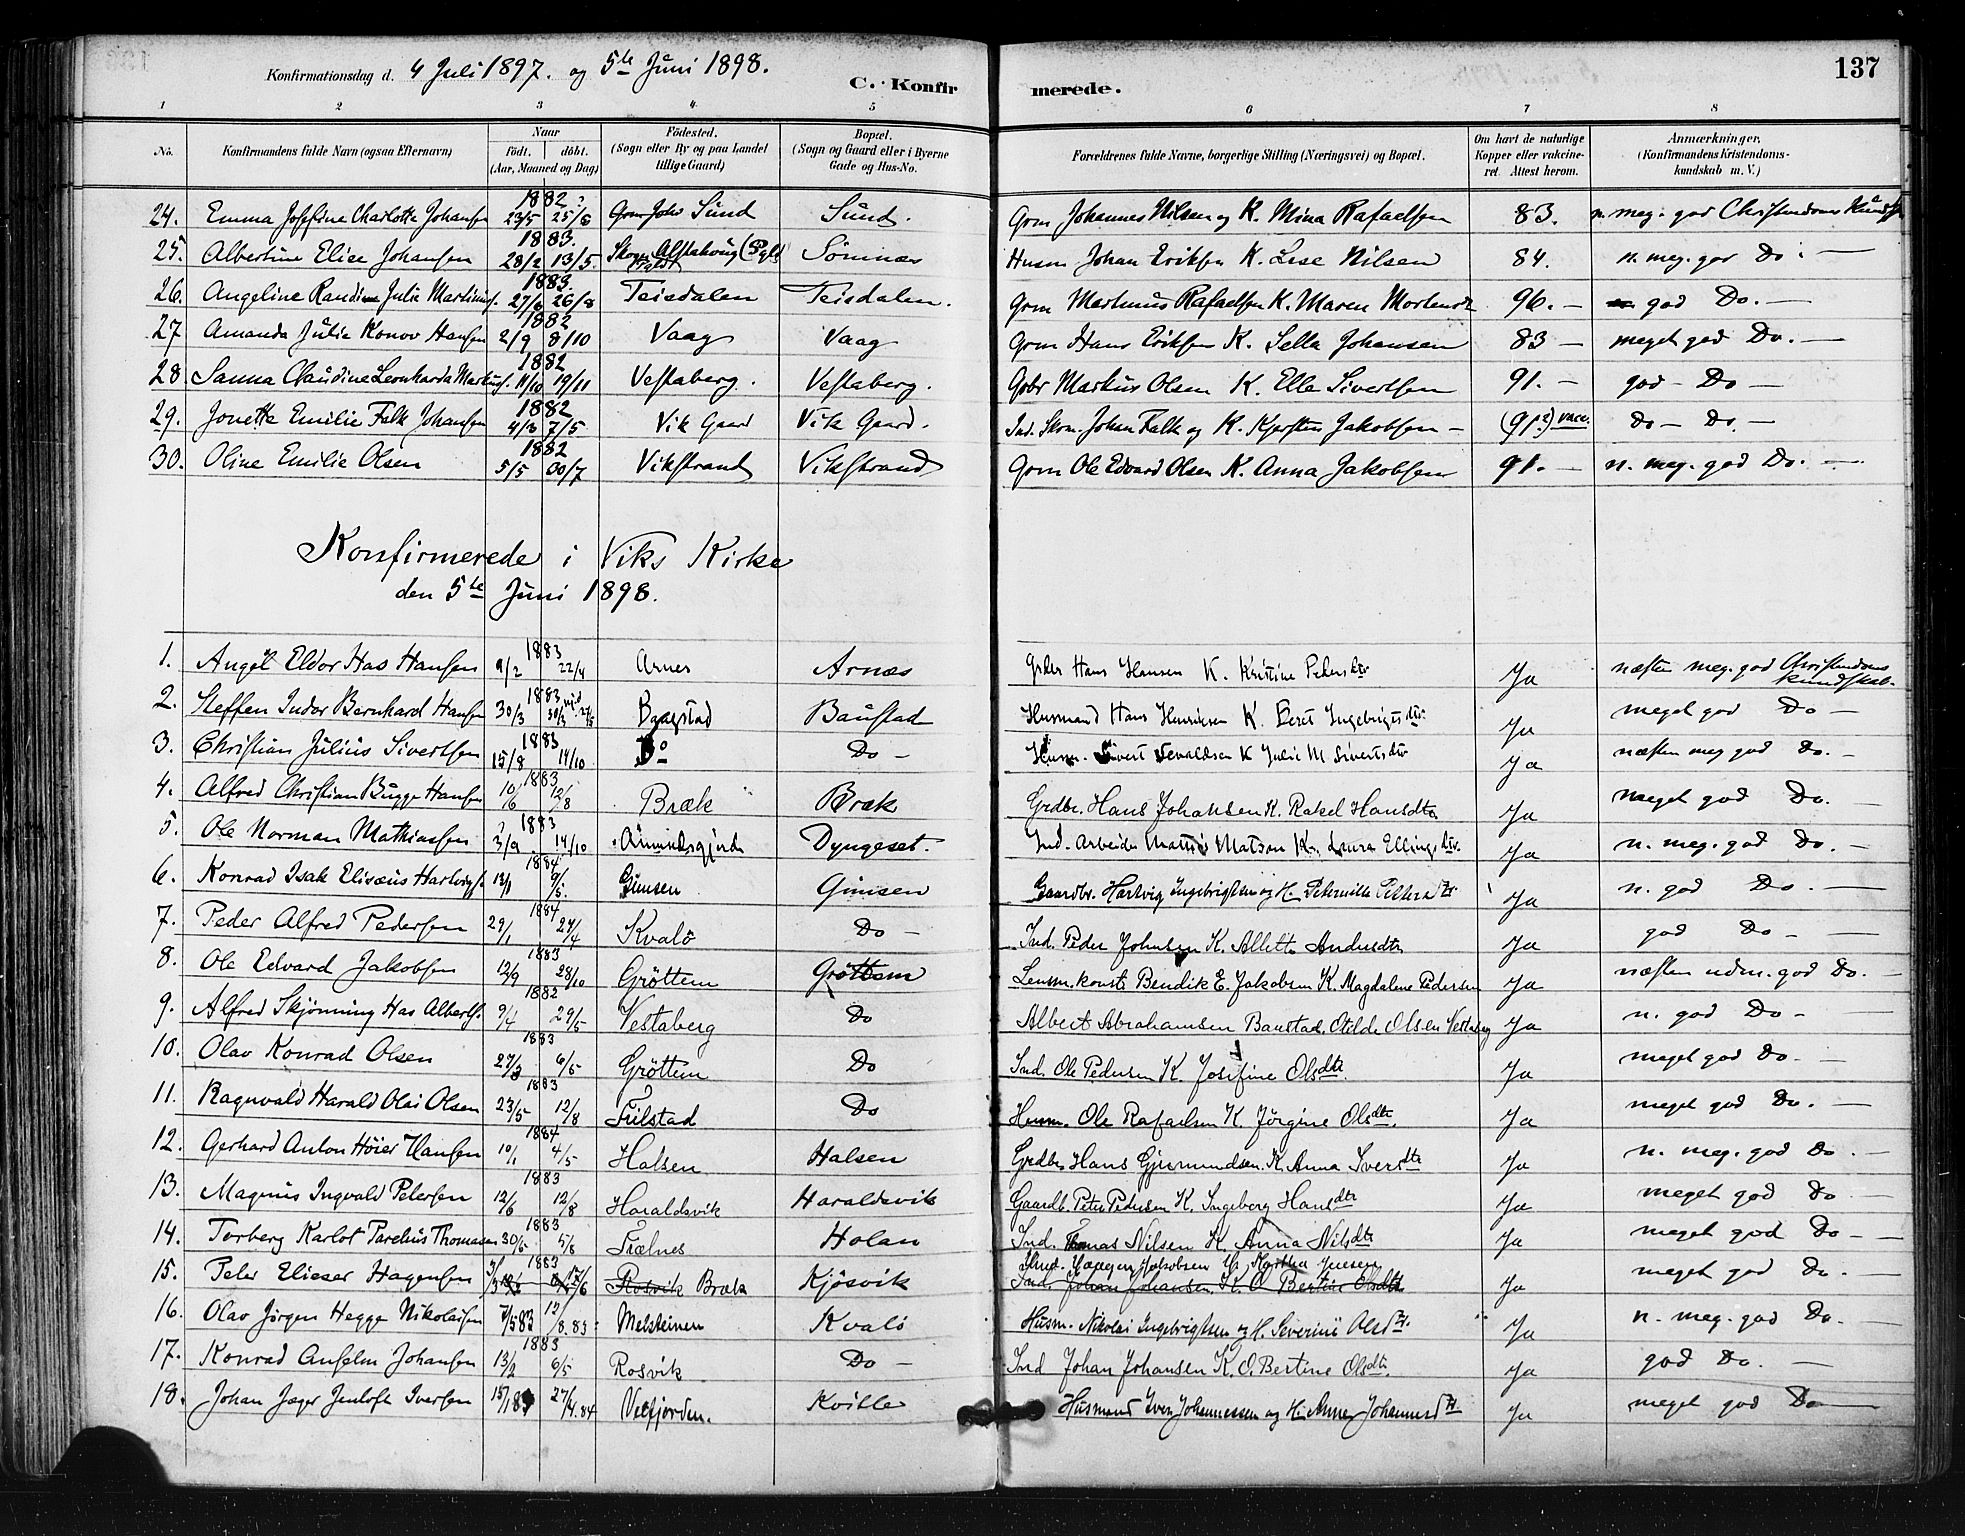 Konfirmationsdag d. 4 Juli 1897. og 5te Juni 1898.
C. Konfirmerede.
137
1 2 3 4 5 6 7 8
No. Konfirmandens fulde Navn (ogsaa Efternavn) Naar födt. döbt. (Aar, Maaned og Dag) Födested. (Sogn eller By og paa Landet tillige Gaard) Bopæl. (Sogn og Gaard eller i Byerne Gade og Hus-No. Forældrenes fulde Navne, borgerlige Stilling (Næringsvei) og Bopæl. Om havt de naturlige Kopper eller vakcineret. Attest herom. Anmærkninger. (Konfirmandens Kristendomskundskab m. V.)
24. Emma Josefine Charlotte Johansen 1882 23/5 25/8 Sund Sund. Grm Johannes Nilsen og K. Mina Rafaelsen 83. n. meg. god Christendoms Kundsk
25. Albertine Elise Johansen 1883. 28/2 13/5. Sömnæs Husm Johan Eriksen K. Lise Nilsen 84. n. meg. god Do. —
26. Angeline Randine Julie Martinuss. 1883. 26/8 Teisdalen Teisdalen. Grm Martinus Rafaelsen K. Maren Mortensd 96. — god Do. —
27 Amanda Julie Konov Hansen 1882 2/9 8/10 Vaag Vaag Grm Hans Eriksen K. Sella Johansen 83 — meget god Do. —
28. Sanna Claudine Leonharda Markuss. 1882 11/10 19/11 Vestaberg. Vestaberg. Gbr Markus Olsen K. Elle Sivertsen 91. — god — Do —
29. Jonette Emilie Falk Johansen 1882 4/3 7/5 Vik Gaard Vik Gaard. Ind. Skom. Johan Falk og K. Kjersten Jakobsen — (91?) vacc. Do — Do. —
30. Oline Emilie Olsen 1882 5/5 30/7 Vikstrand Vikstrand Grm Ole Edvard Olsen K. Anna Jakobsen 91. — n. meg. god Do. —
Konfirmerede i Viks Kirke
den 5te Juni 1898.
1. Angel Eldor Has Hansen 1883 9/2 22/4 Arnes Arnæs Hans Hansen K. Kristine Pedersdtr Ja næsten meg. god Christendoms kundskab.
2. Steffen Indor Bernhard Hansen 1883 30/3 Baagstad Baustad Husmand Hans Henriksen K. Beret Ingebrigtsdtr. Ja meget god Do —
3. Christian Julius Sivertsen 1883 15/8 14/10 Do Do — Husm. Sivert Nevaldsen K Julie M Sivertsdtr Ja næsten meg god Do. —
4. Alfred Christian Bugge Hansen 1883 10/6 12/8 Bræk Bræk Grdbr. Hans Johansen K. Rakel Hansdtr Ja meget god Do. —
5. Ole Norman Mathiassen 1883 3/9 14/10 Dyngeset. Ind. Arbeider Mattis Matson K. Laura Ellingsdtr. Ja n. meg. god Do. —
6. Konrad Isak Elisæus Hartvigs. 1884 13/1 9/5. Gimsen Gimsen Gaardbr. Hartvig Ingebrigtsen og H. Peternille Pettersdtr. Ja n. god Do. —
7. Peder Alfred Pedersen 1884 29/1 27/4 Kvalö Do — Ind. Peder Johnsen K. Allette Andersdtr Ja god Do — —
8. Ole Edvard Jakobsen 1883 12/9 28/10 Gröttem Gröttem Lensm. konst. Bendik E. Jakobsen K. Magdalene Pedersen Ja næsten udm. god Do. —
9. Alfred Skjönning Has Alberts. 1882 9/4 29/5 Vestaberg Do Albert Abrahamsen Baustad. Otilde Olsen Vestaberg Ja n. god Do — —
10. Olav Konrad Olsen 1883 27/3 6/5 Gröttem Do Ind. Ole Pedersen K. Josefine Olsdtr. Ja meget god Do. —
11. Ragnvald Harald Olai Olsen 1883 23/5 12/8 Tilstad Do Husm. Ole Rafaelsen K. Jörgine Olsdtr. Ja meget god Do. —
12. Gerhard Anton Höier Hansen 1884 10/1 4/5 Halsen Halsen Grdbr. Hans Gjermundsen K. Anna Iversdtr Ja n. meg. god Do. —
13. Magnus Ingvald Petersen 1883 12/6 12/8 Haraldsvik Haraldsvik Gaardb. Peter Pedersen K. Ingeborg Hansdtr Ja meget god Do —
14. Torberg Karlot Parelius Thomassen 1883 30/5 5/8 Trælnes Holan Ind. Tomas Nilsen K. Anna Nilsdtr Ja meget god Do — —
15. Peter Elieser Hagensen 1883 Rosvik Bræk Kjösvik Ind. Haagen Jakobsen H. Martha Jensen
Ind. Johan Johansen K. O Bertine Olsdtr Ja meget god Do. —
16. Olav Jörgen Hegge Nikolaisen 7/5 83 12/8.83 Melsteinen Kvalö Husm. Nikolai Ingebrigtsen og H. Severine Olsdtr. Ja n. meg. god Do. —
17. Konrad Anselm Johansen 1883 13/2 6/5 Rosvik Do — Ind Johan Johansen K. O. Bertine Olsdtr. Ja god Do. —
18. Johan Jæger Jenloft Iversen 27/4.84 Velfjorden. Kville Husmand Iver Johannessen og H. Anne Johannesdtr. Ja meget god Do —